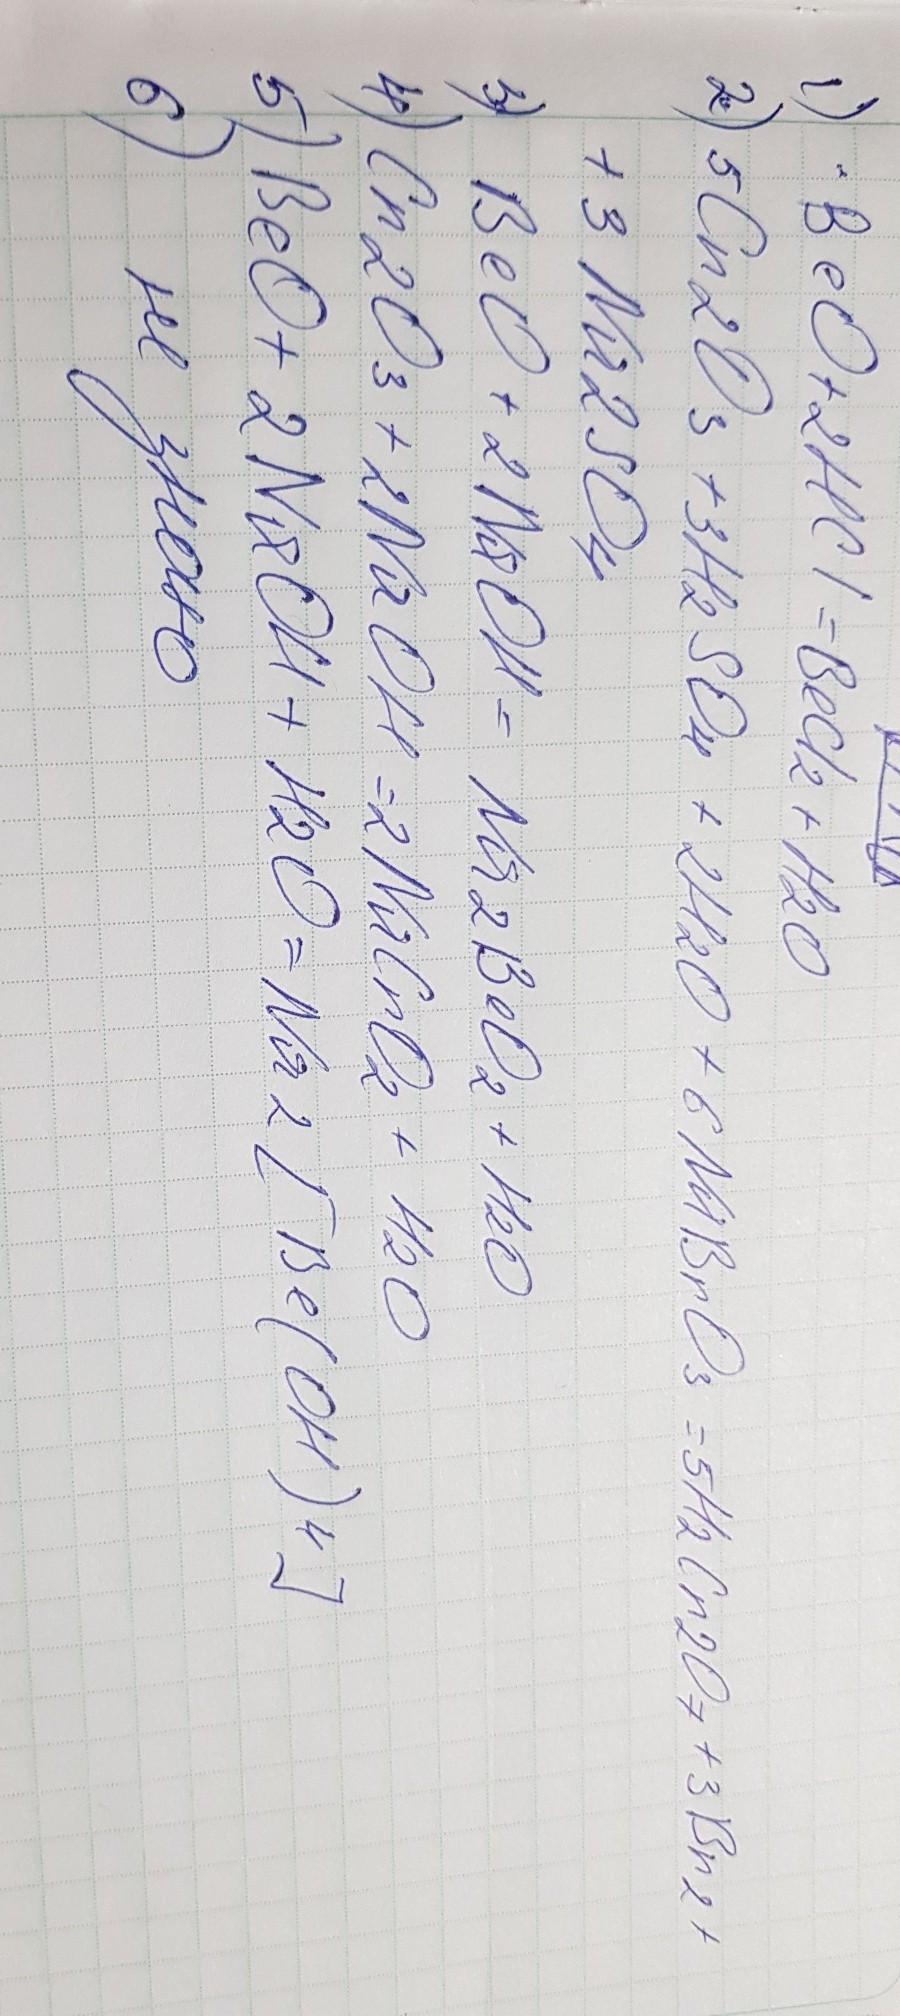 1) BeO+2HCl=BeCl2+H2O
2) 5Cr2O3+3H2SO4+2H2O+6NaBrO3=5H2Cr2O7+3Br2+
+3Na2SO4
3) BeO+2NaOH=Na2BeO2+H2O
4) Cr2O3+2NaOH=2NaCrO2+H2O
5) BeO+2NaOH+H2O=Na2[Be(OH)4]
6) не знаю